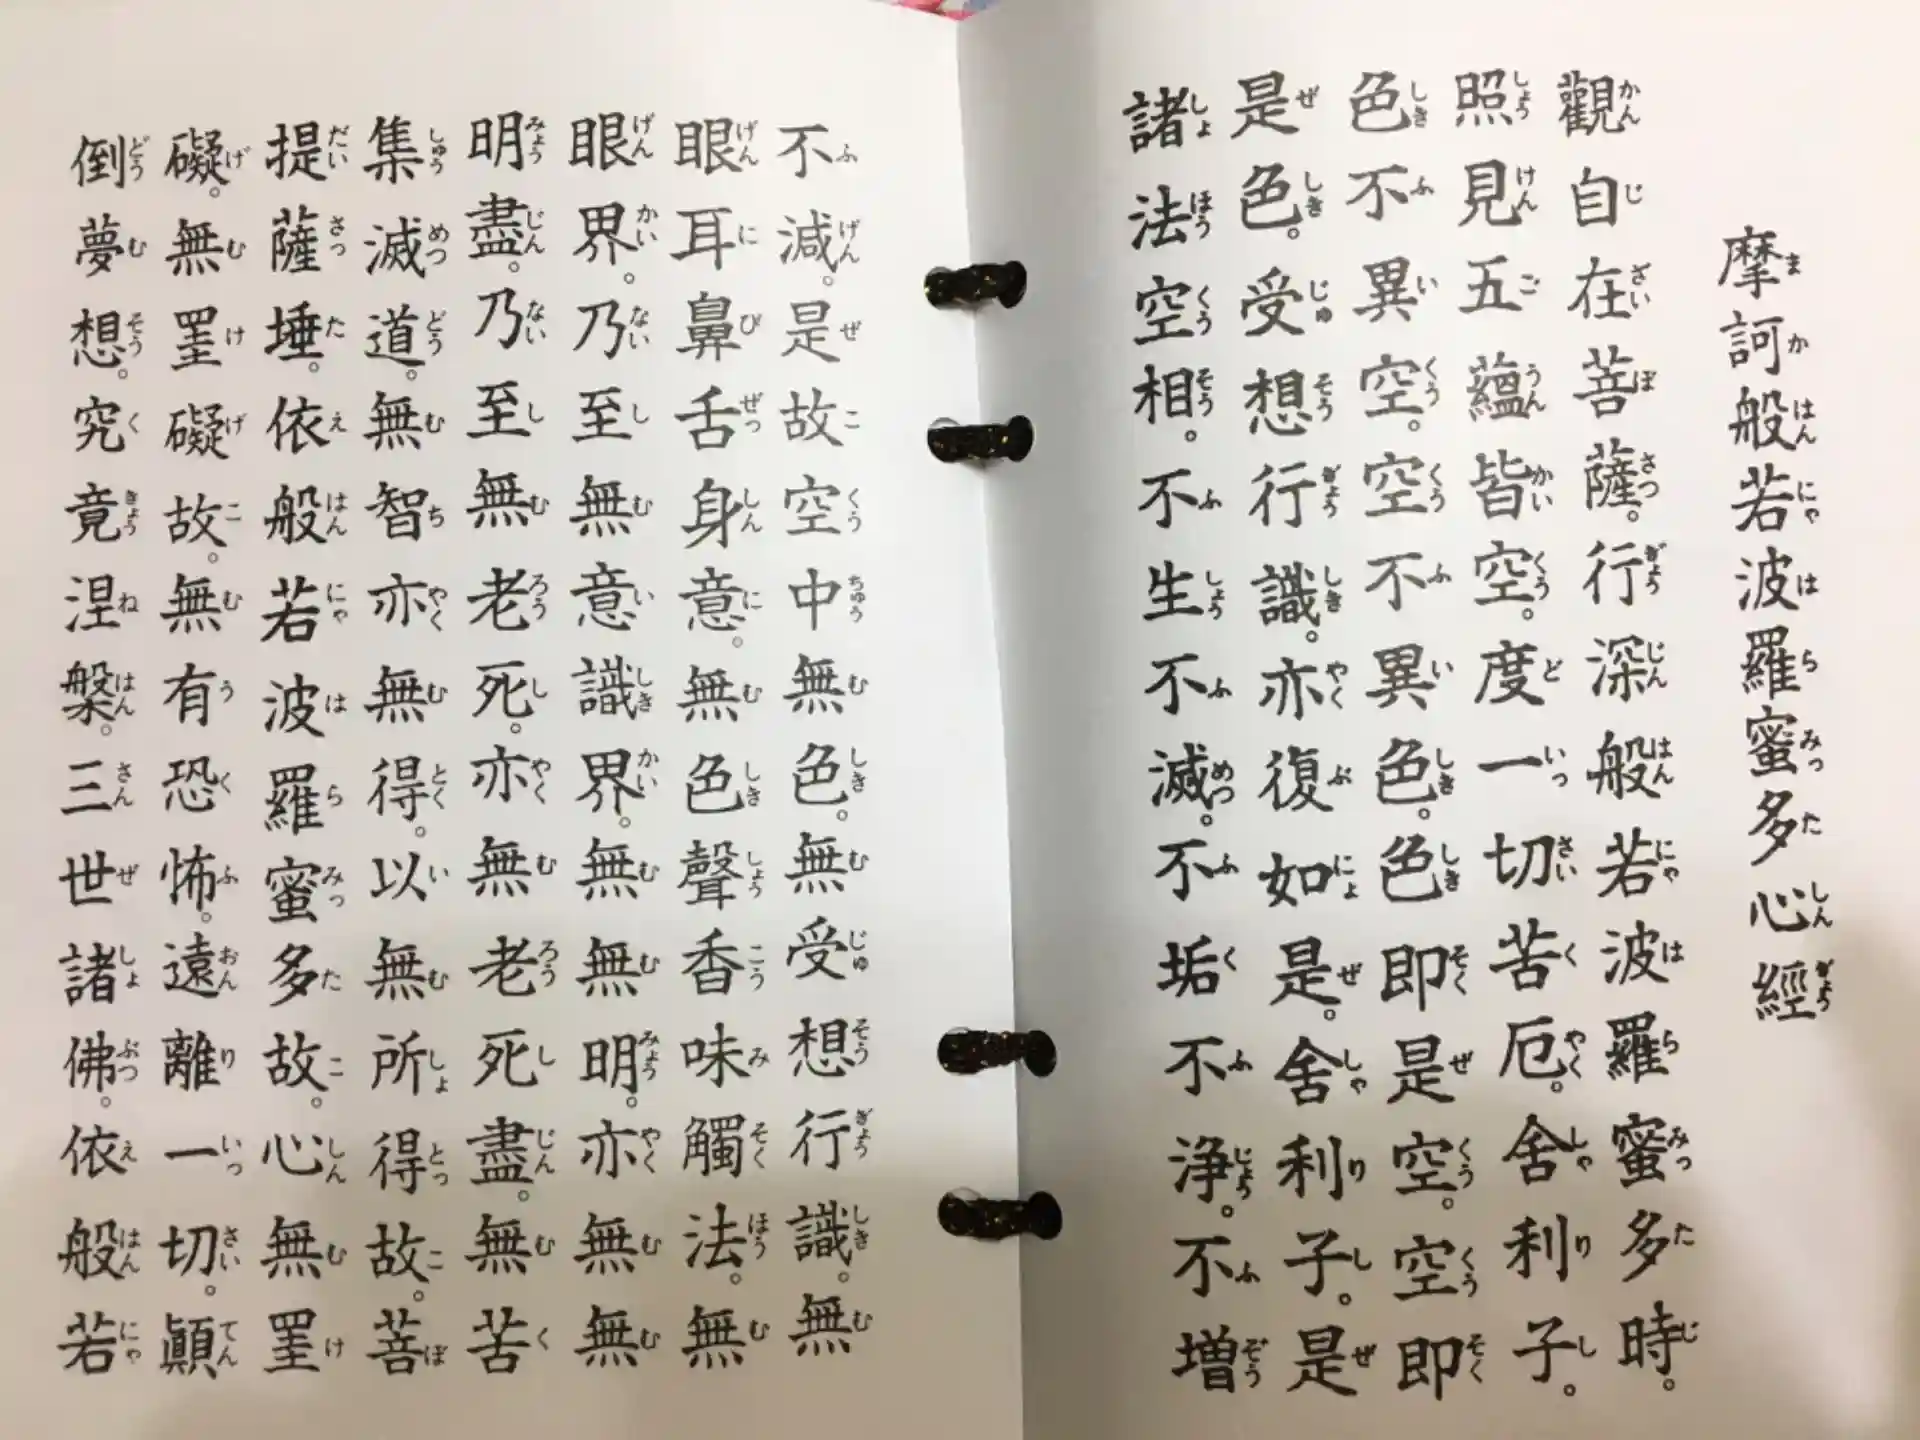 摩訶般若波羅蜜多心經
觀自在菩薩。行深般若波羅蜜多時。
照見五蘊皆空。度一切苦厄。舍利子。
色不異空。空不異色。色即是空。空即
是色。受想行識。亦復如是。舍利子。是
諸法空相。不生不滅。不垢不浄。不増
不減。是故空中無色。無受想行識。無
眼耳鼻舌身意。無色聲香味觸法。無
眼界。乃至無意識界。無無明。亦無無
明盡。乃至無老死。亦無老死盡。無苦
集滅道。無智亦無得。以無所得故。菩
提薩埵。依般若波羅蜜多故。心無罣
礙。無罣礙故。無有恐怖。遠離一切。顛
倒夢想。究竟涅槃。三世諸佛。依般若